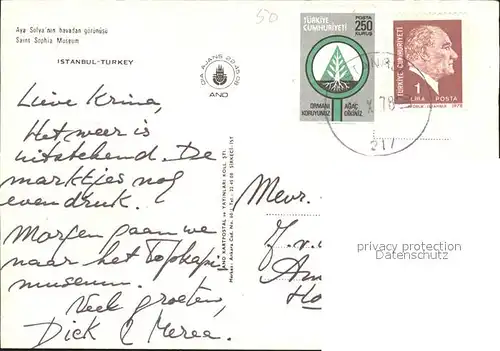 Aya Sofya'nın havadan görünüşü
Saint Sophia Museum
ISTANBUL-TURKEY
50
AND
TÜRKİYE CUMHURİYETİ
POSTA
250
KURUŞ
ORMANI KORUYUNUZ
AĞAÇ DİKİNİZ
TÜRKİYE CUMHURİYETİ
1
LİRA POSTA
78
217
Lieve Krina,
Het weer is
uitstekend. De
marktjes nog
even druk.
Morgen gaan we
naar het Topkapi
museum.
Veel groeten,
Dick &
AND KARTPOSTAL ve YAYINLARI KOLL. ŞTİ.
Mevr.
Z.v.
Am
Ho
privacy protection
Datenschutz